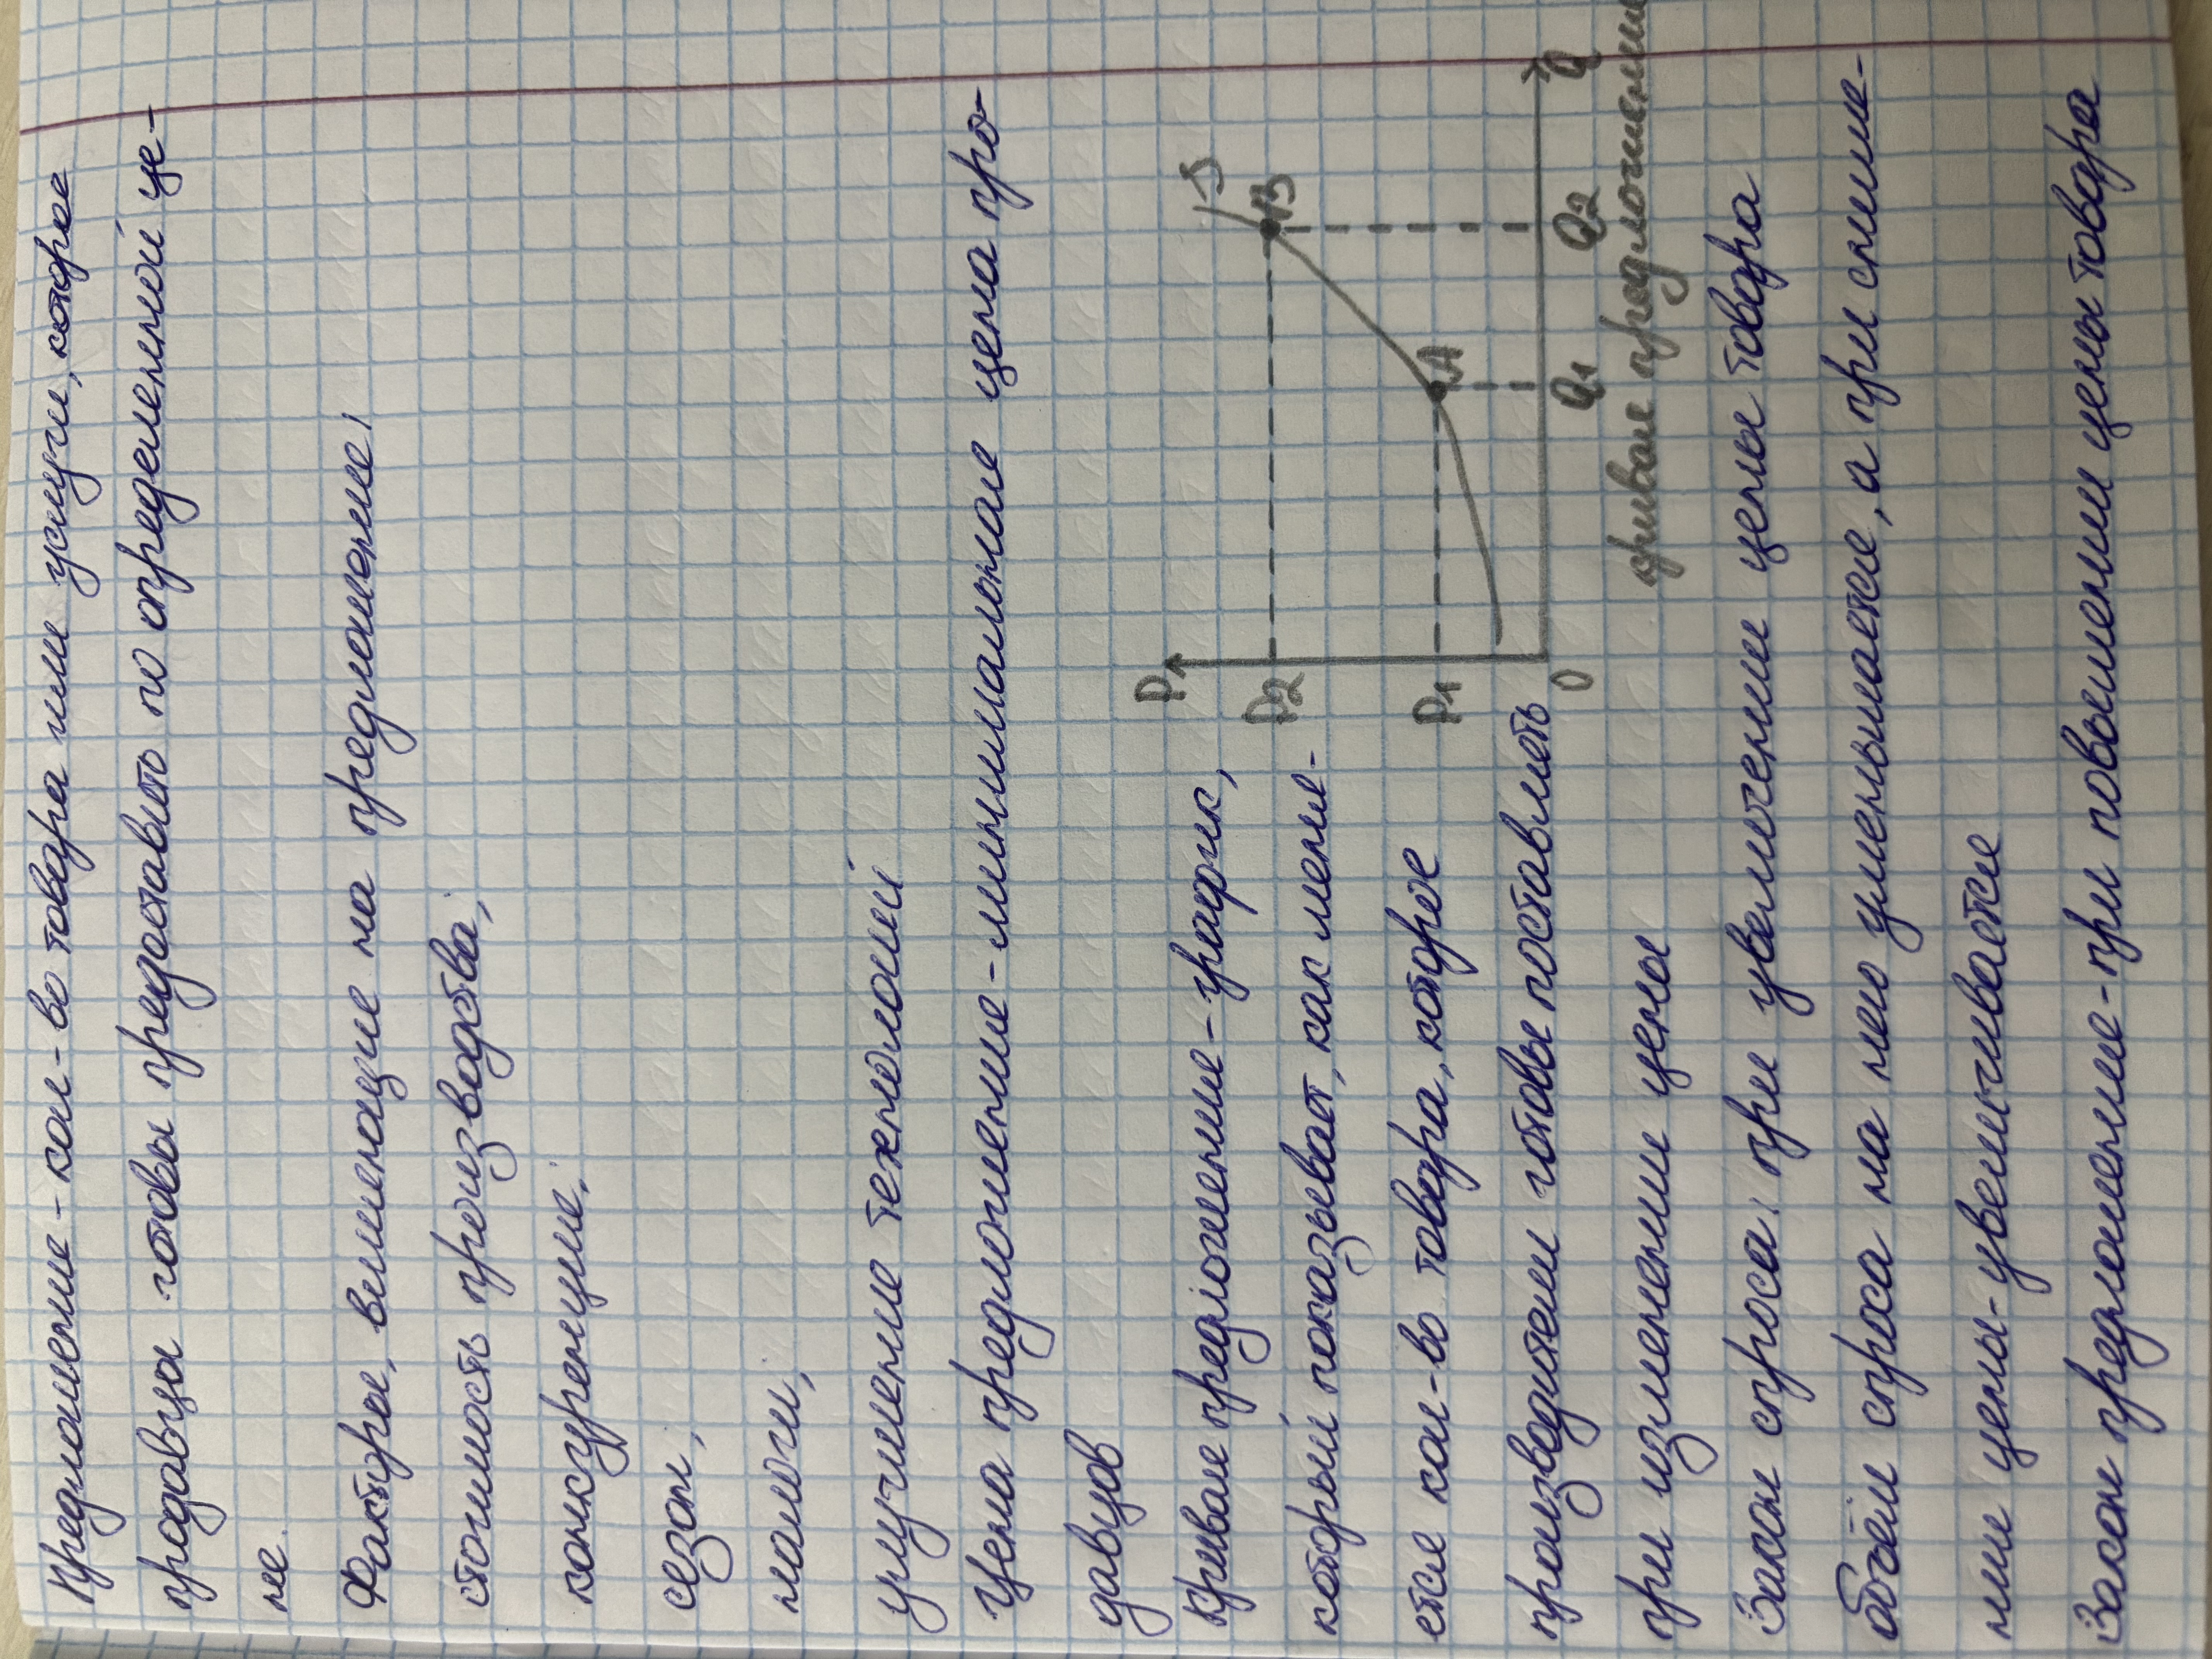 Предложение - кол-во товара или услуги, которое
продавцы готовы предоставить по определенной це-
не.
Факторы, влияющие на предложение:
стоимость производства;
конкуренция;
сезон;
налоги;
улучшение технологий
Цена предложение - минимальная цена про-
давцов
Кривая предложения - график,
который показывает, как меня-
ется кол-во товара, которое
производители готовы поставлять
при изменении цены
P
P2
P1
0
A
B
S
Q1
Q2
Q
кривая предложения
Закон спроса: при увеличении цены товара
объём спроса на него уменьшается, а при сниже-
нии цены - увеличивается
Закон предложения - при повышении цены товара